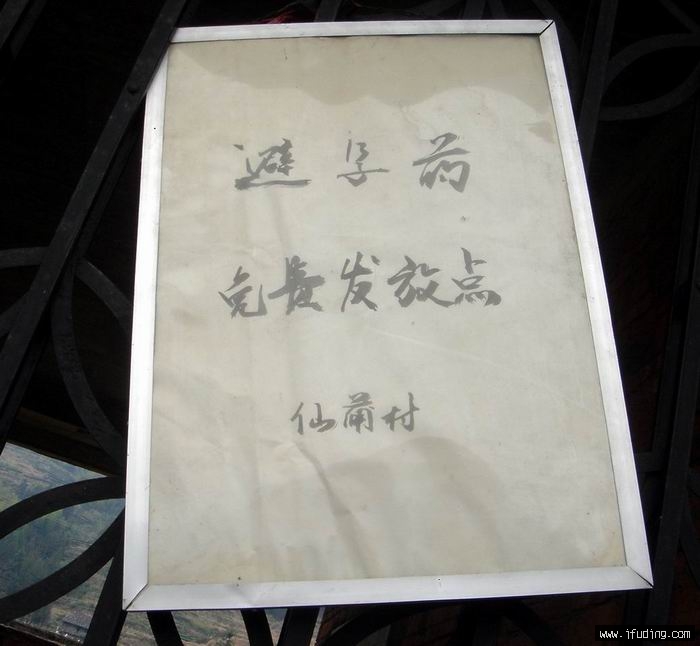 避孕药
免费发放点
仙莆村
www.ifuding.com